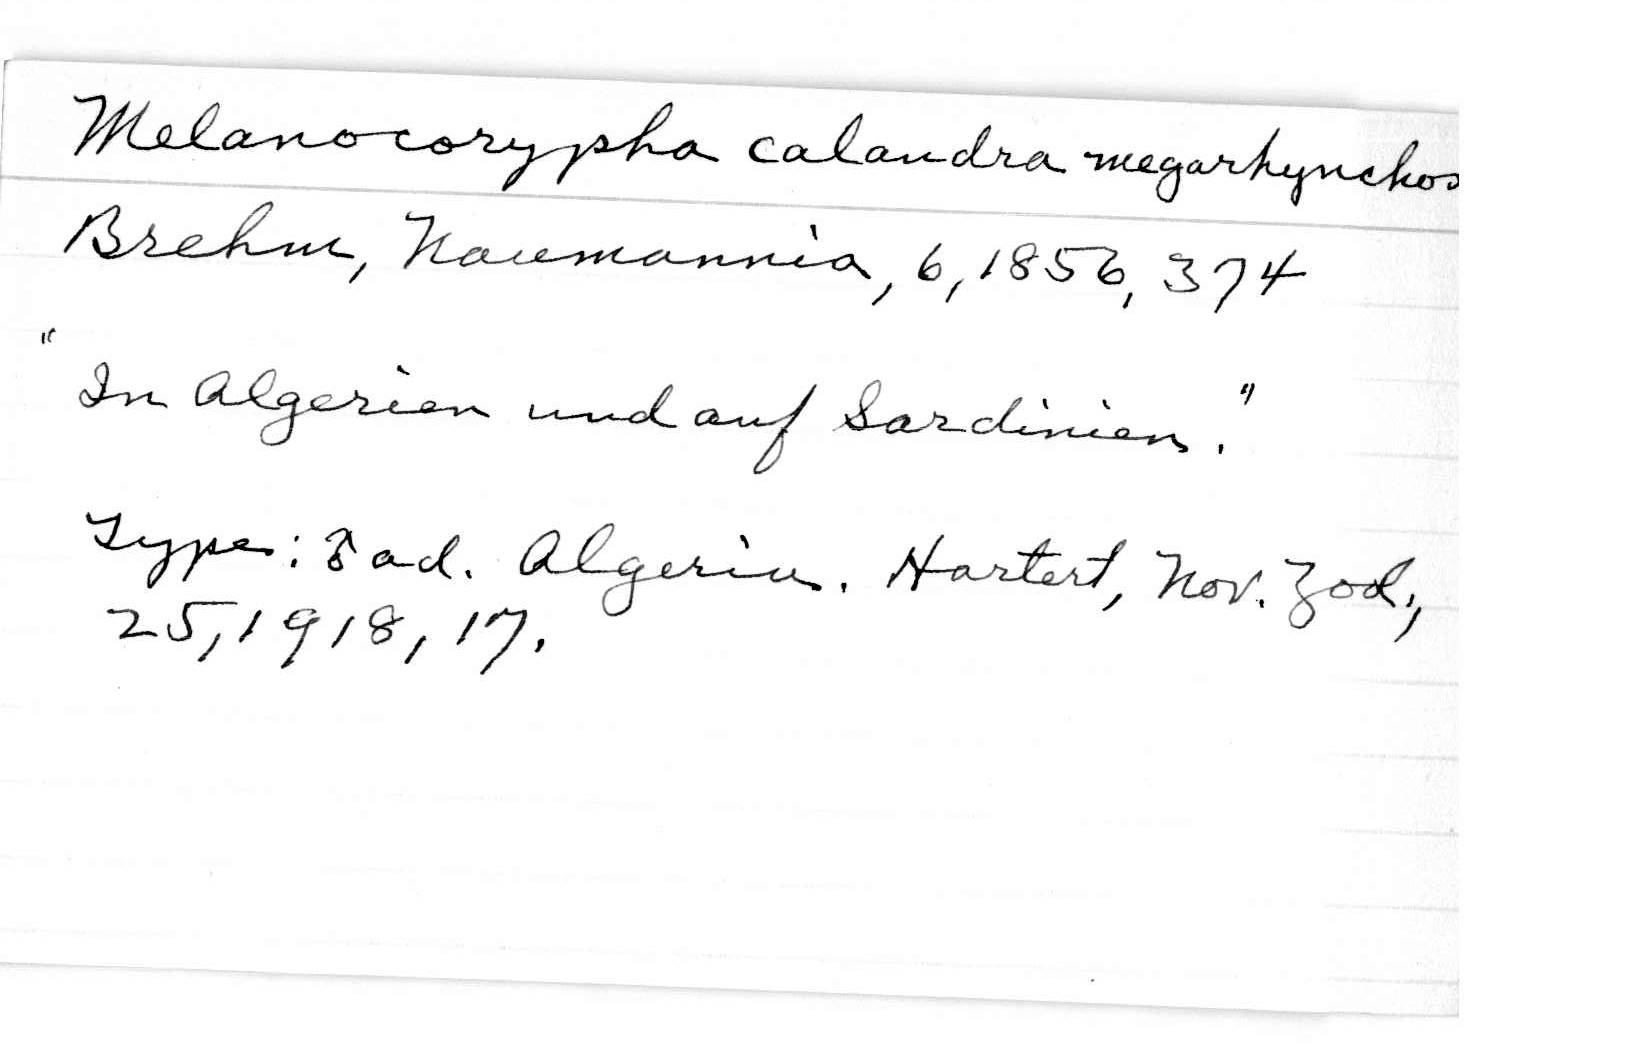 Melanocorypha calandra megarhynchos
Brehm, Naumannia, 6, 1856, 374
"In Algerien und auf Sardinien."
Type: ♂ ad. Algeria. Hartert, Nov. Zool.,
25, 1918, 17.